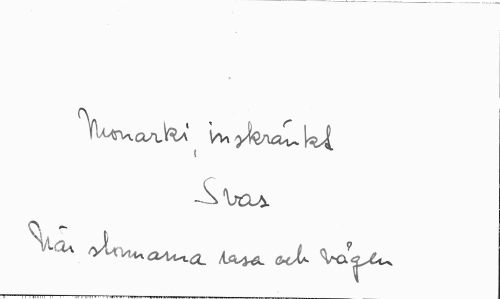 Monarki, inskränkt
Svas
När stormarna rasa och vågen